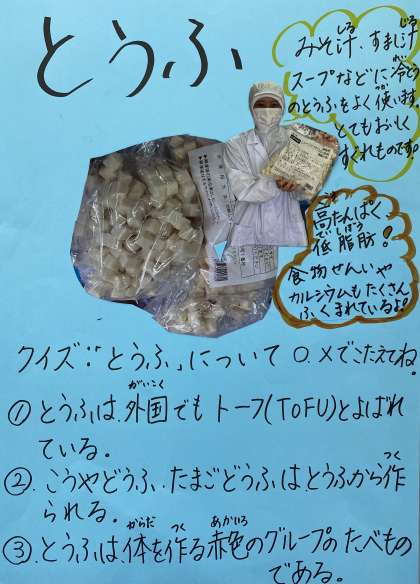 とうふ
みそ汁、すまし汁
スープなどに冷とう
のとうふをよく使います。
とてもおいしく
すぐれものです。
高たんぱく
低脂肪！
食物せんいや
カルシウムもたくさん
ふくまれているよ!!
クイズ：「とうふ」について ○、×でこたえてね。
① とうふは、外国でもトーフ(TOFU)とよばれ
ている。
② こうやどうふ、たまごどうふは、とうふから作
られる。
③ とうふは、体を作る赤色のグループのたべもの
である。